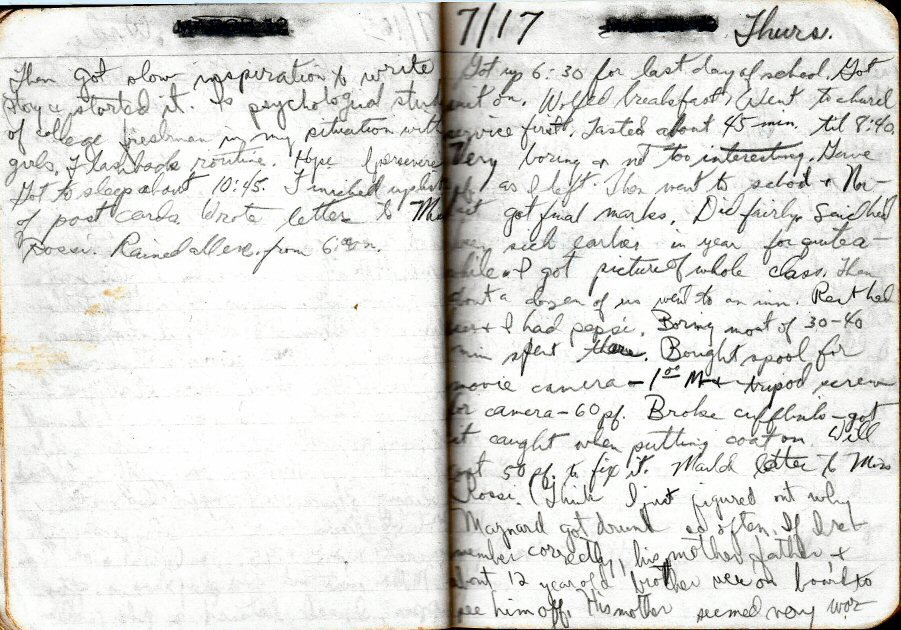 Then got slow inspiration to write
story & started it. Is psychological study
of college freshman in my situation with
girls. Flashback routine. Hope I persevere
Got to sleep about 10:45. Finished up list
of post cards. Wrote letter to Miss
Rossi. Rained all eve. from 6:00 on.
7/17 Thurs.
Got up 6:30 for last day of school. Got
suit on. Wolfed breakfast, went to church
service first, lasted about 45 min. til 8:40.
Very boring or not too interesting. Gave
pf. as I left. Then went to school &
got final marks. Did fairly. Said had
been sick earlier in year for quite a-
while. I got picture of whole class. Then
about a dozen of us went to an inn. Rest had
beer & I had pepsi. Boring most of 30-40
min spent there. Bought spool for
movie camera - 1⁰⁰ M + tripod screw
for camera - 60 pf. Broke cufflinks - got
it caught when putting coat on. Will
cost 50 pf. to fix it. Mailed letter to Miss
Rossi. Think I just figured out why
Maynard got drunk so often. If I re-
member correctly, his mother, father &
about 12 year old brother were on board to
see him off. His mother seemed very wor-